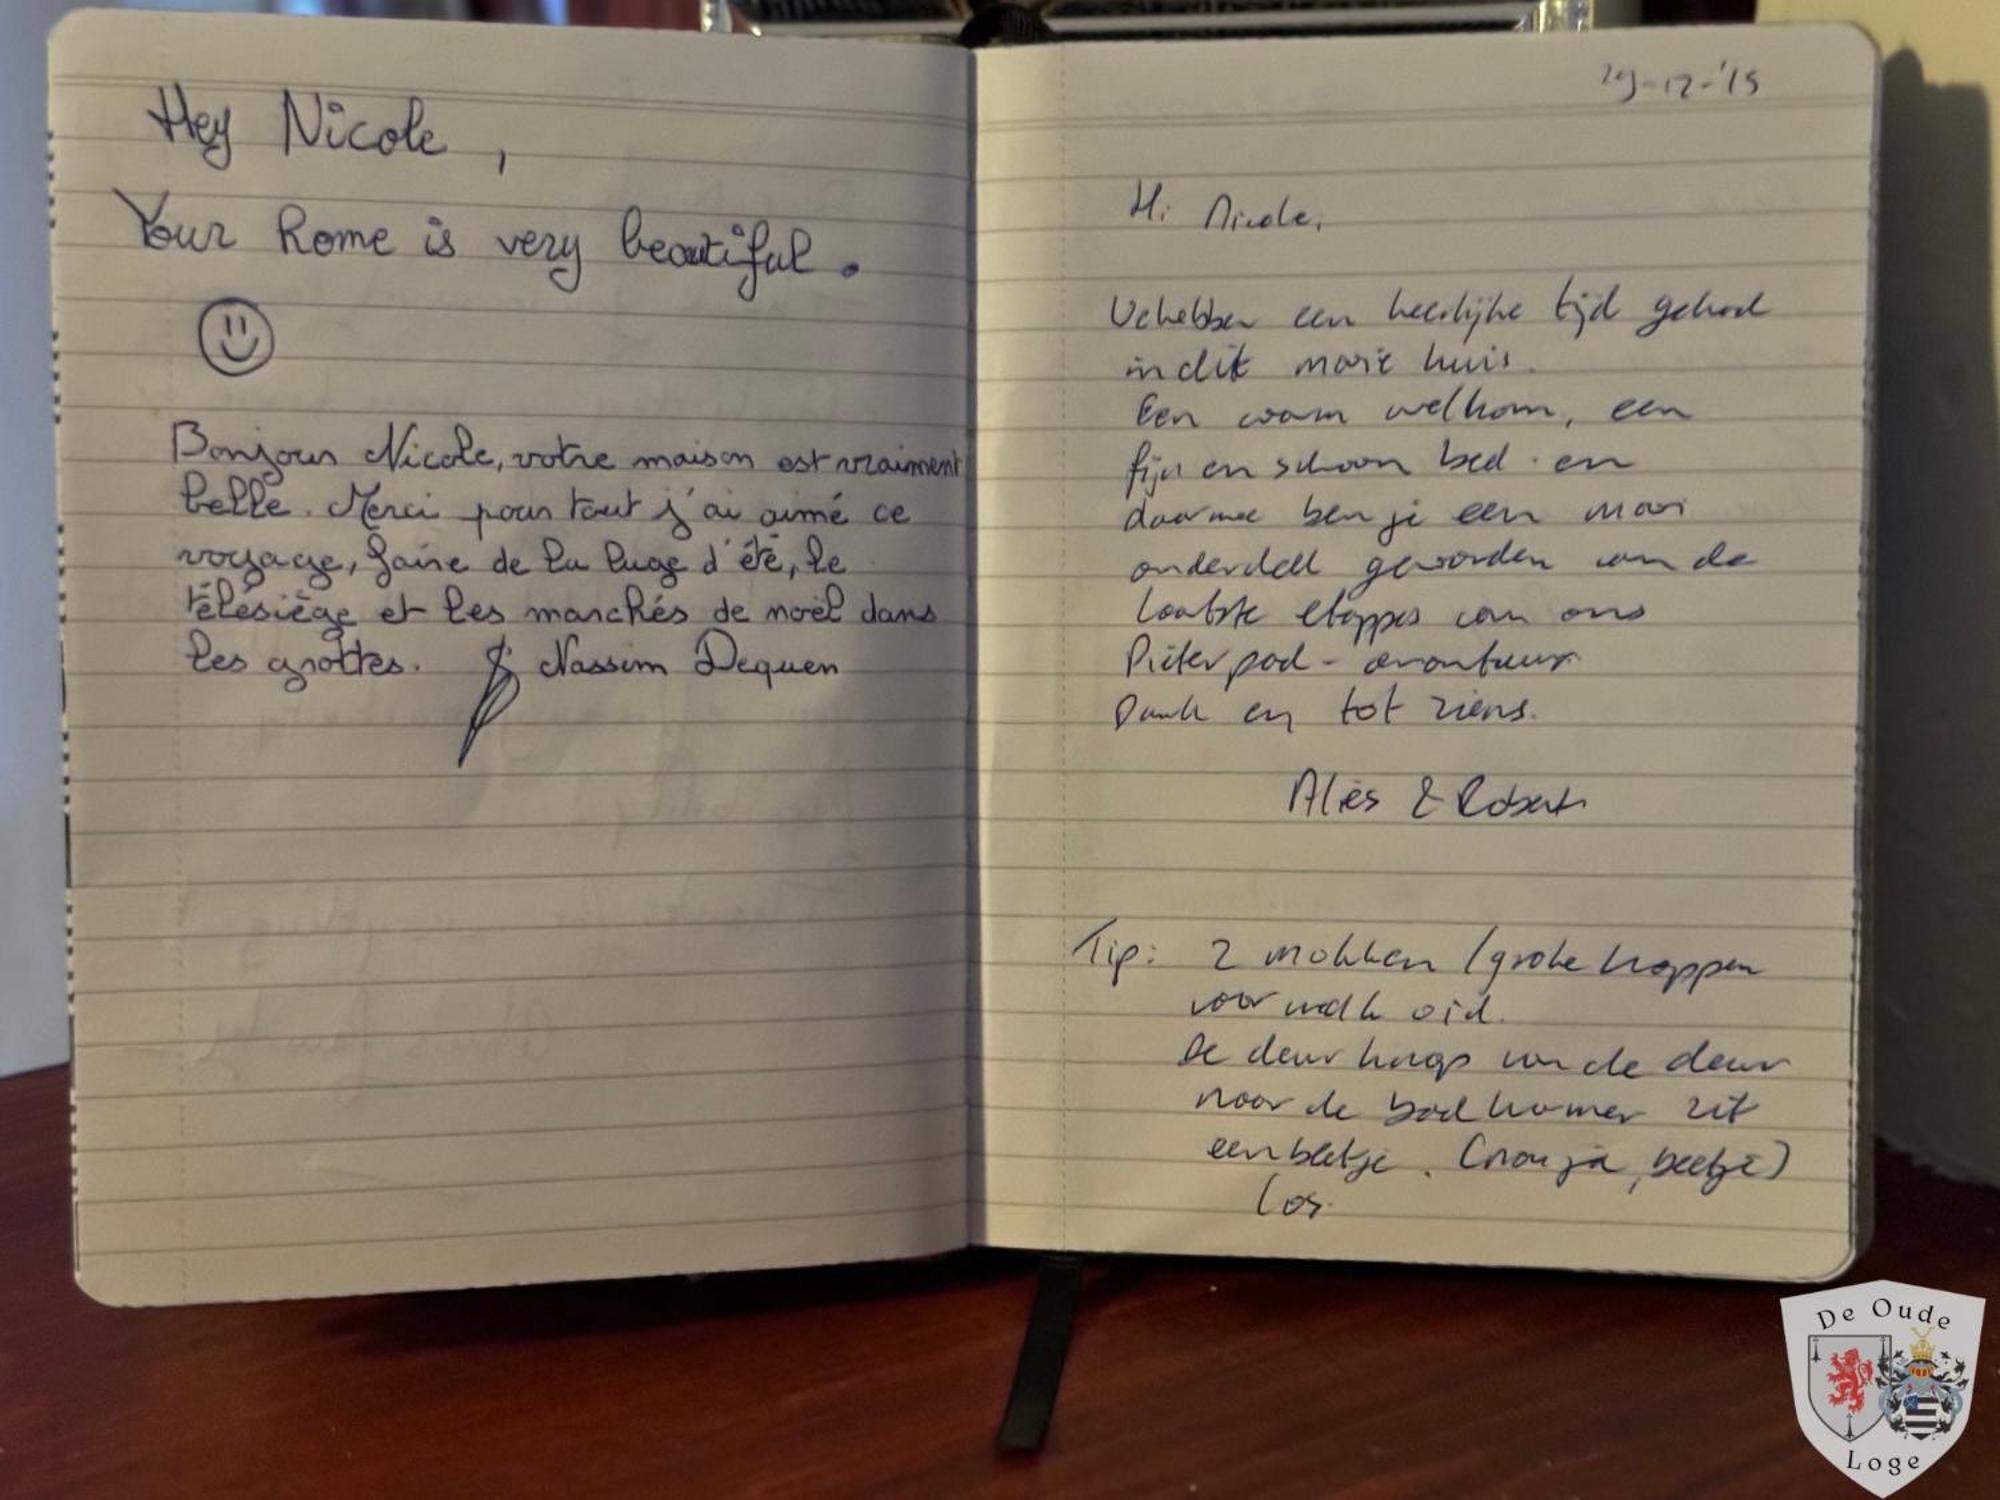 Hey Nicole,
Your home is very beautiful.
Bonjour Nicole, votre maison est vraiment
belle. Merci pour tout j'ai aimé ce
voyage, faire de la luge d'été, le
télésiège et les marchés de noël dans
les grottes. Nassim Dequen
29-12-'15
Hi Nicole,
We hebben een heerlijke tijd gehad
in dit mooie huis.
Een warm welkom, een
fijn en schoon bed en
daarmee ben je een mooi
onderdeel geworden van de
laatste etappes van ons
Pieterpad-avontuur
Dank en tot ziens.
Aliës & Robert
Tip: 2 mokken / grote koppen
voor melk oid.
De deurknop van de deur
naar de badkamer zit
een beetje. (nou ja, beetje)
los.
De Oude
Loge